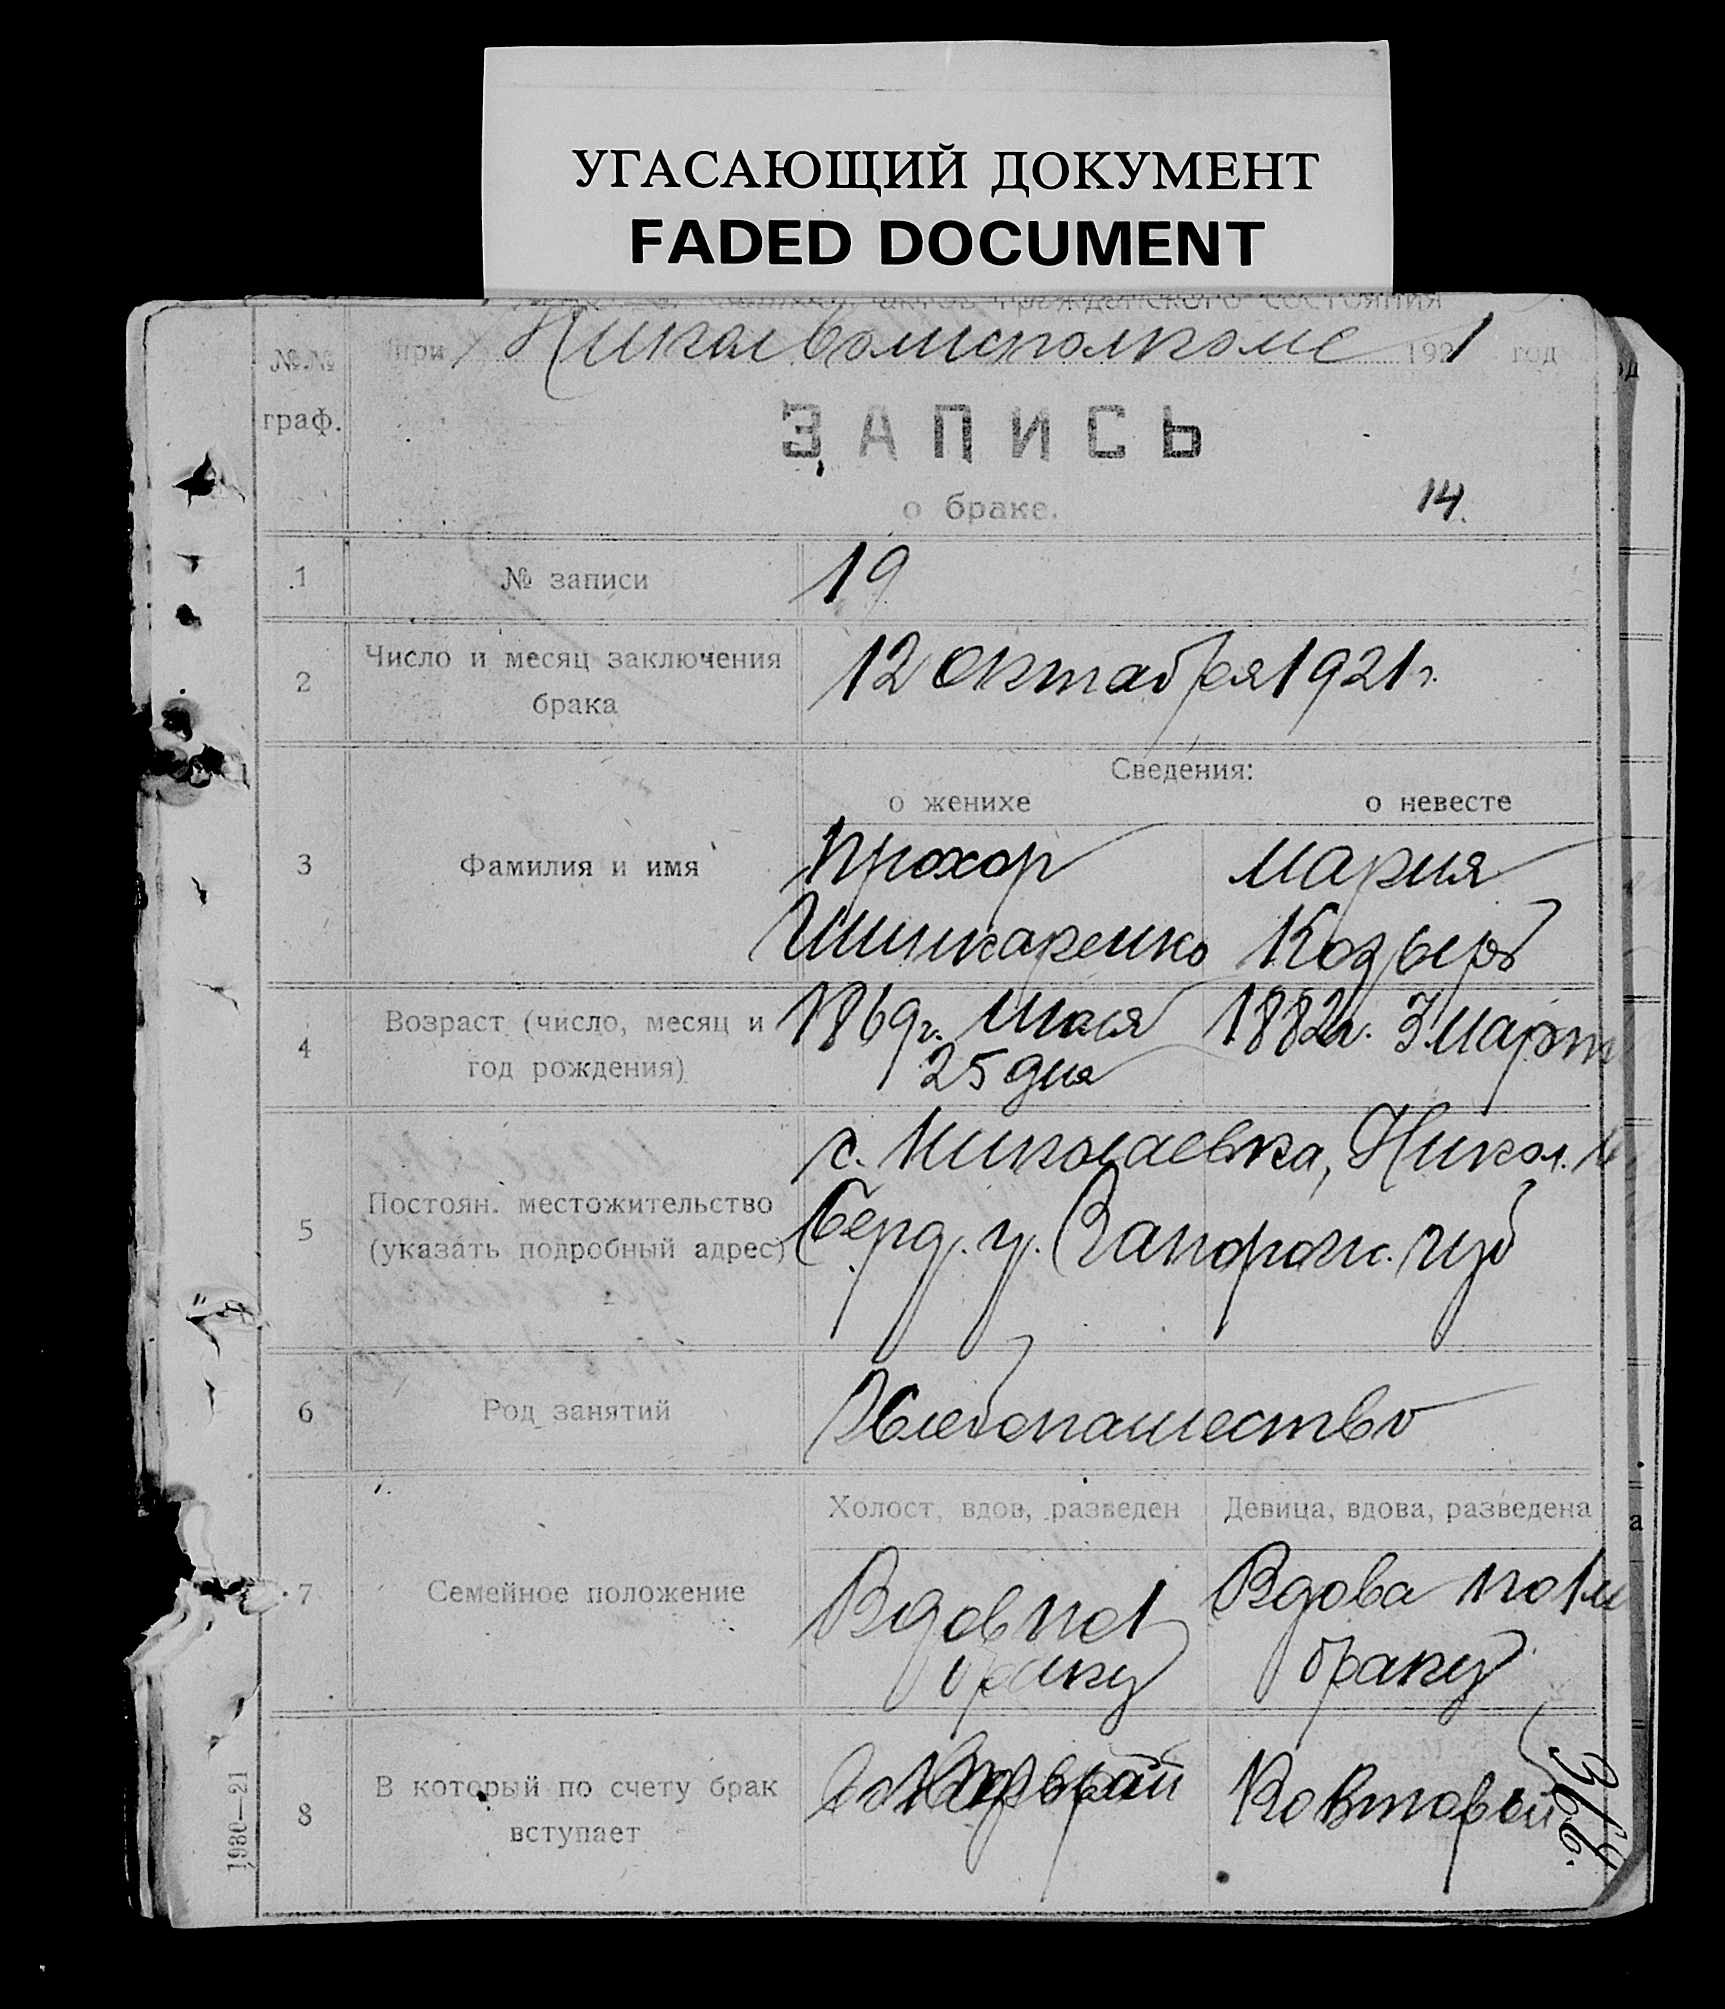 УГАСАЮЩИЙ ДОКУМЕНТ
FADED DOCUMENT
актов гражданского состояния
№№ граф.
при Никол волисполкоме 1921 год
ЗАПИСЬ
о браке.
14.
1 № записи 19
2 Число и месяц заключения брака 12 Октября 1921 г.
Сведения:
о женихе о невесте
3 Фамилия и имя
Прохор Мария
Шинкаренко Козырь
4 Возраст (число, месяц и год рождения)
1869 г. Июля 1882 г. 3 март
25 дня
5 Постоян. местожительство (указать подробный адрес)
с. Николаевка, Никол.
Берд. у. Запорож. губ
6 Род занятий Хлебопашество
Холост, вдов, разведен Девица, вдова, разведена
7 Семейное положение
Вдов по 1 Вдова по 1 м
браку браку
8 В который по счету брак вступает
Во Вторый
1980—21